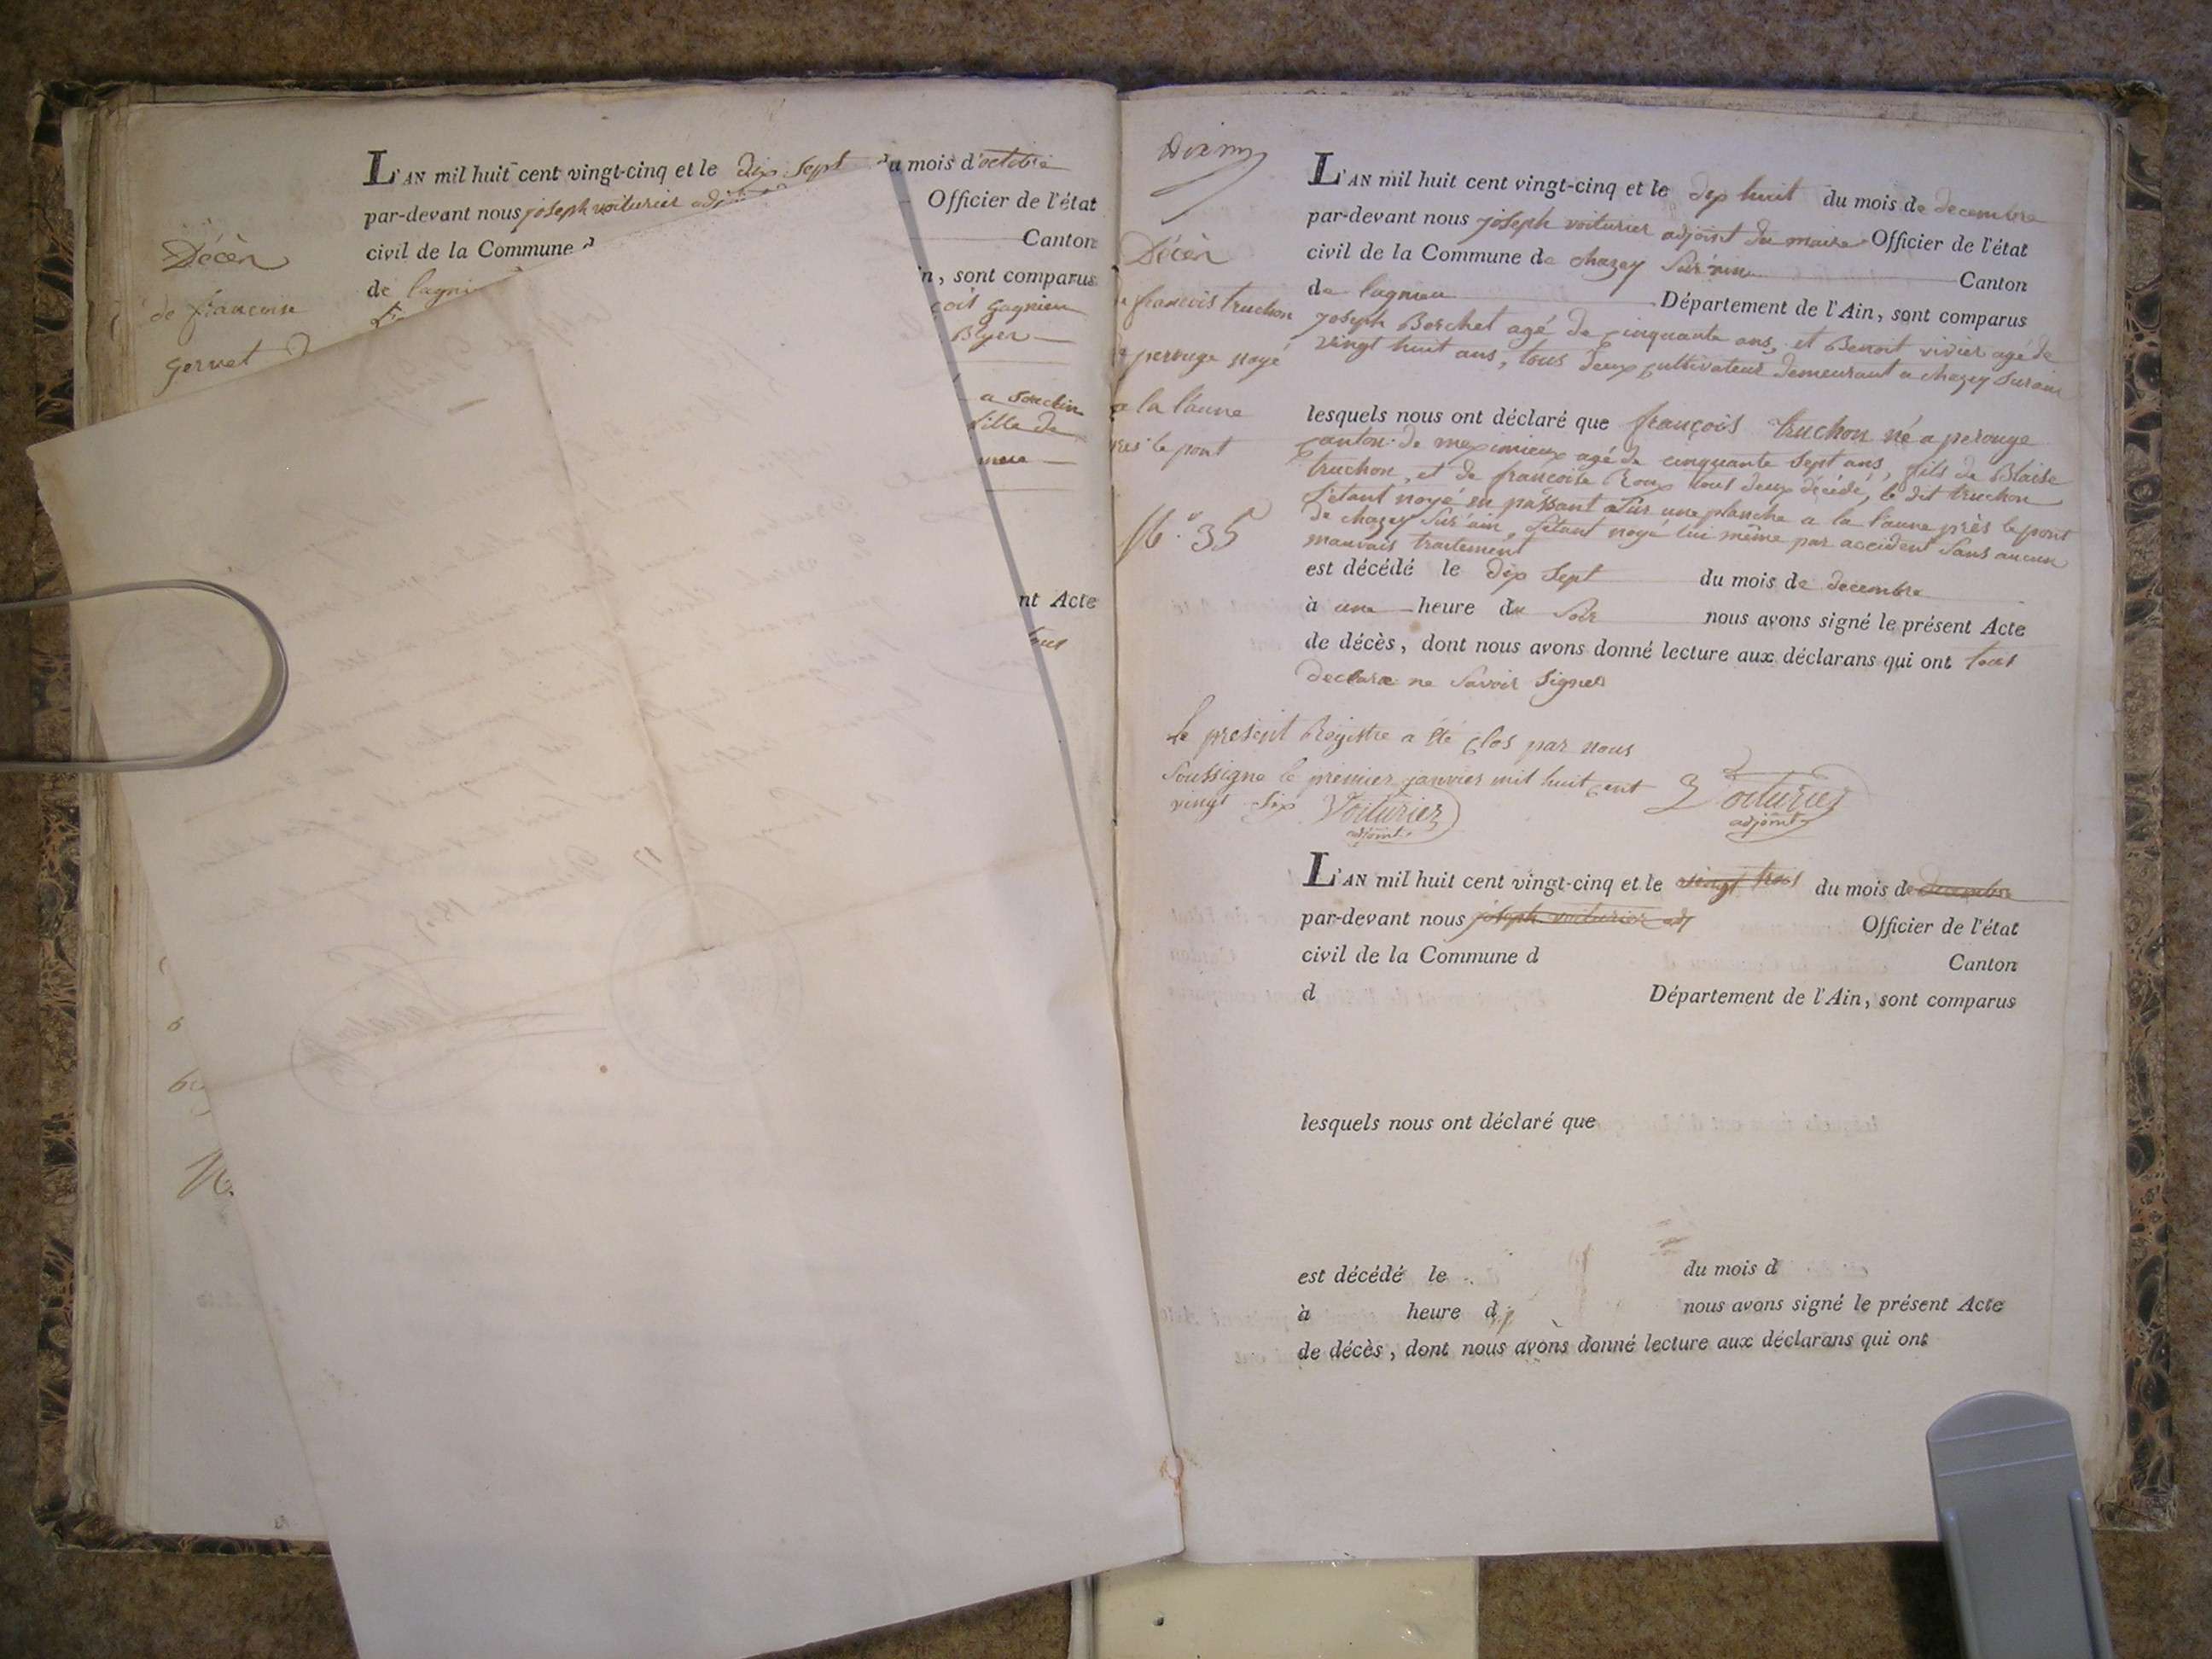 L'AN mil huit cent vingt-cinq et le dix sept du mois d'octobre
par-devant nous joseph voiturier
Officier de l'état
civil de la Commune
Canton
de lagni
n, sont comparus
çois gagnieu
Byer
a Souclin
fille de
mere
nt Acte
tous
Décès
de francoise
gervet
L'AN mil huit cent vingt-cinq et le dix huit du mois de decembre
par-devant nous joseph voiturier adjoint du maire Officier de l'état
civil de la Commune de chazey sur ain Canton
de lagnieu Département de l'Ain, sont comparus
joseph Berchet agé de cinquante ans, et Benoit vivier agé de
vingt huit ans, tous deux cultivateur demeurant a chazey sur ain
lesquels nous ont déclaré que françois truchon né a perouge
canton de meximieux agé de cinquante sept ans, fils de Blaise
truchon, et de francoise Roux tous deux décédé, le dit truchon
s'étant noyé en passant sur une planche a la l'aune près le pont
de chazey sur ain, s'étant noyé lui même par accident sans aucun
mauvais traitement
est décédé le dix sept du mois de decembre
à une heure du soir nous avons signé le présent Acte
de décès, dont nous avons donné lecture aux déclarans qui ont tous
declare ne savoir signer
Décès
de francois truchon
de perouge noyé
a la l'aune
pres le pont
N.° 35
le present Registre a été clos par nous
soussigne le premier janvier mil huit cent
vingt six Voiturier
adjoint
Voiturier
adjoint
L'AN mil huit cent vingt-cinq et le vingt trois du mois de decembre
par-devant nous joseph voiturier adj Officier de l'état
civil de la Commune d Canton
d Département de l'Ain, sont comparus
lesquels nous ont déclaré que
est décédé le du mois d
à heure d nous avons signé le présent Acte
de décès, dont nous avons donné lecture aux déclarans qui ont